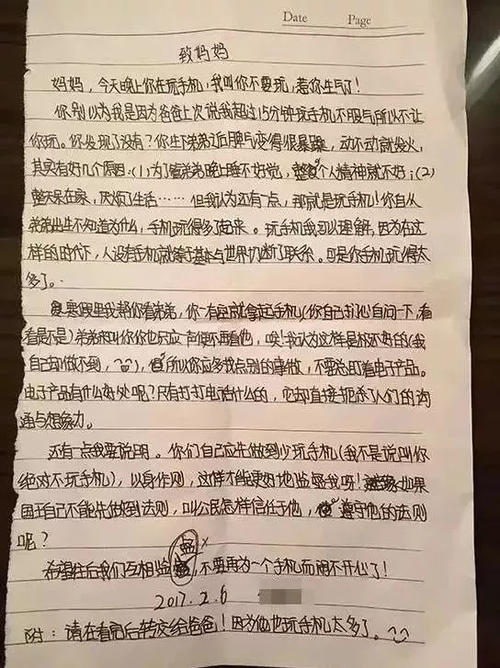 Date Page
致妈妈
妈妈，今天晚上你在玩手机，我叫你不要玩，惹你生气了！
你别以为我是因为爸爸上次说我超过15分钟玩手机不服气所以不让
你玩。你发现了没有？你生下弟弟后脾气变得很暴躁，动不动就发火，
其实有好几个原因：(1)为了管弟弟晚上睡不好觉，整个人精神就不好；(2)
整天呆在家，厌烦了生活……但我认为还有一点，那就是玩手机！你自从
弟弟出生不知道为什么，手机玩得多了起来。玩手机我可以理解，因为在这
样的时代下，人没有手机就等于基本与世界切断了联系。可是你手机玩得太
多了。
寒假里我帮你看弟弟，你一有空就拿起手机(你自己扪心自问一下，看
看是不是)弟弟来叫你你也只应一声便不再看他，唉！我认为这样是极不好的(我
自己却做不到，)，所以你应多找点别的事做，不要总盯着电子产品。
电子产品有什么好处呢？只有打打电话什么的，它却直接扼杀了人们的沟
通与想象力。
还有一点我要说明。你们自己应先做到少玩手机(我不是说叫你
绝对不玩手机)，以身作则，这样才能更好地监督我呀！如果
国王自己不能先做到法则，叫公民怎样信任于他，遵守他的法则
呢？
希望往后我们互相监督，不要再为一个手机而闹不开心了！
2017.2.6
附：请在看完后转交给爸爸！因为他也玩手机太多了。